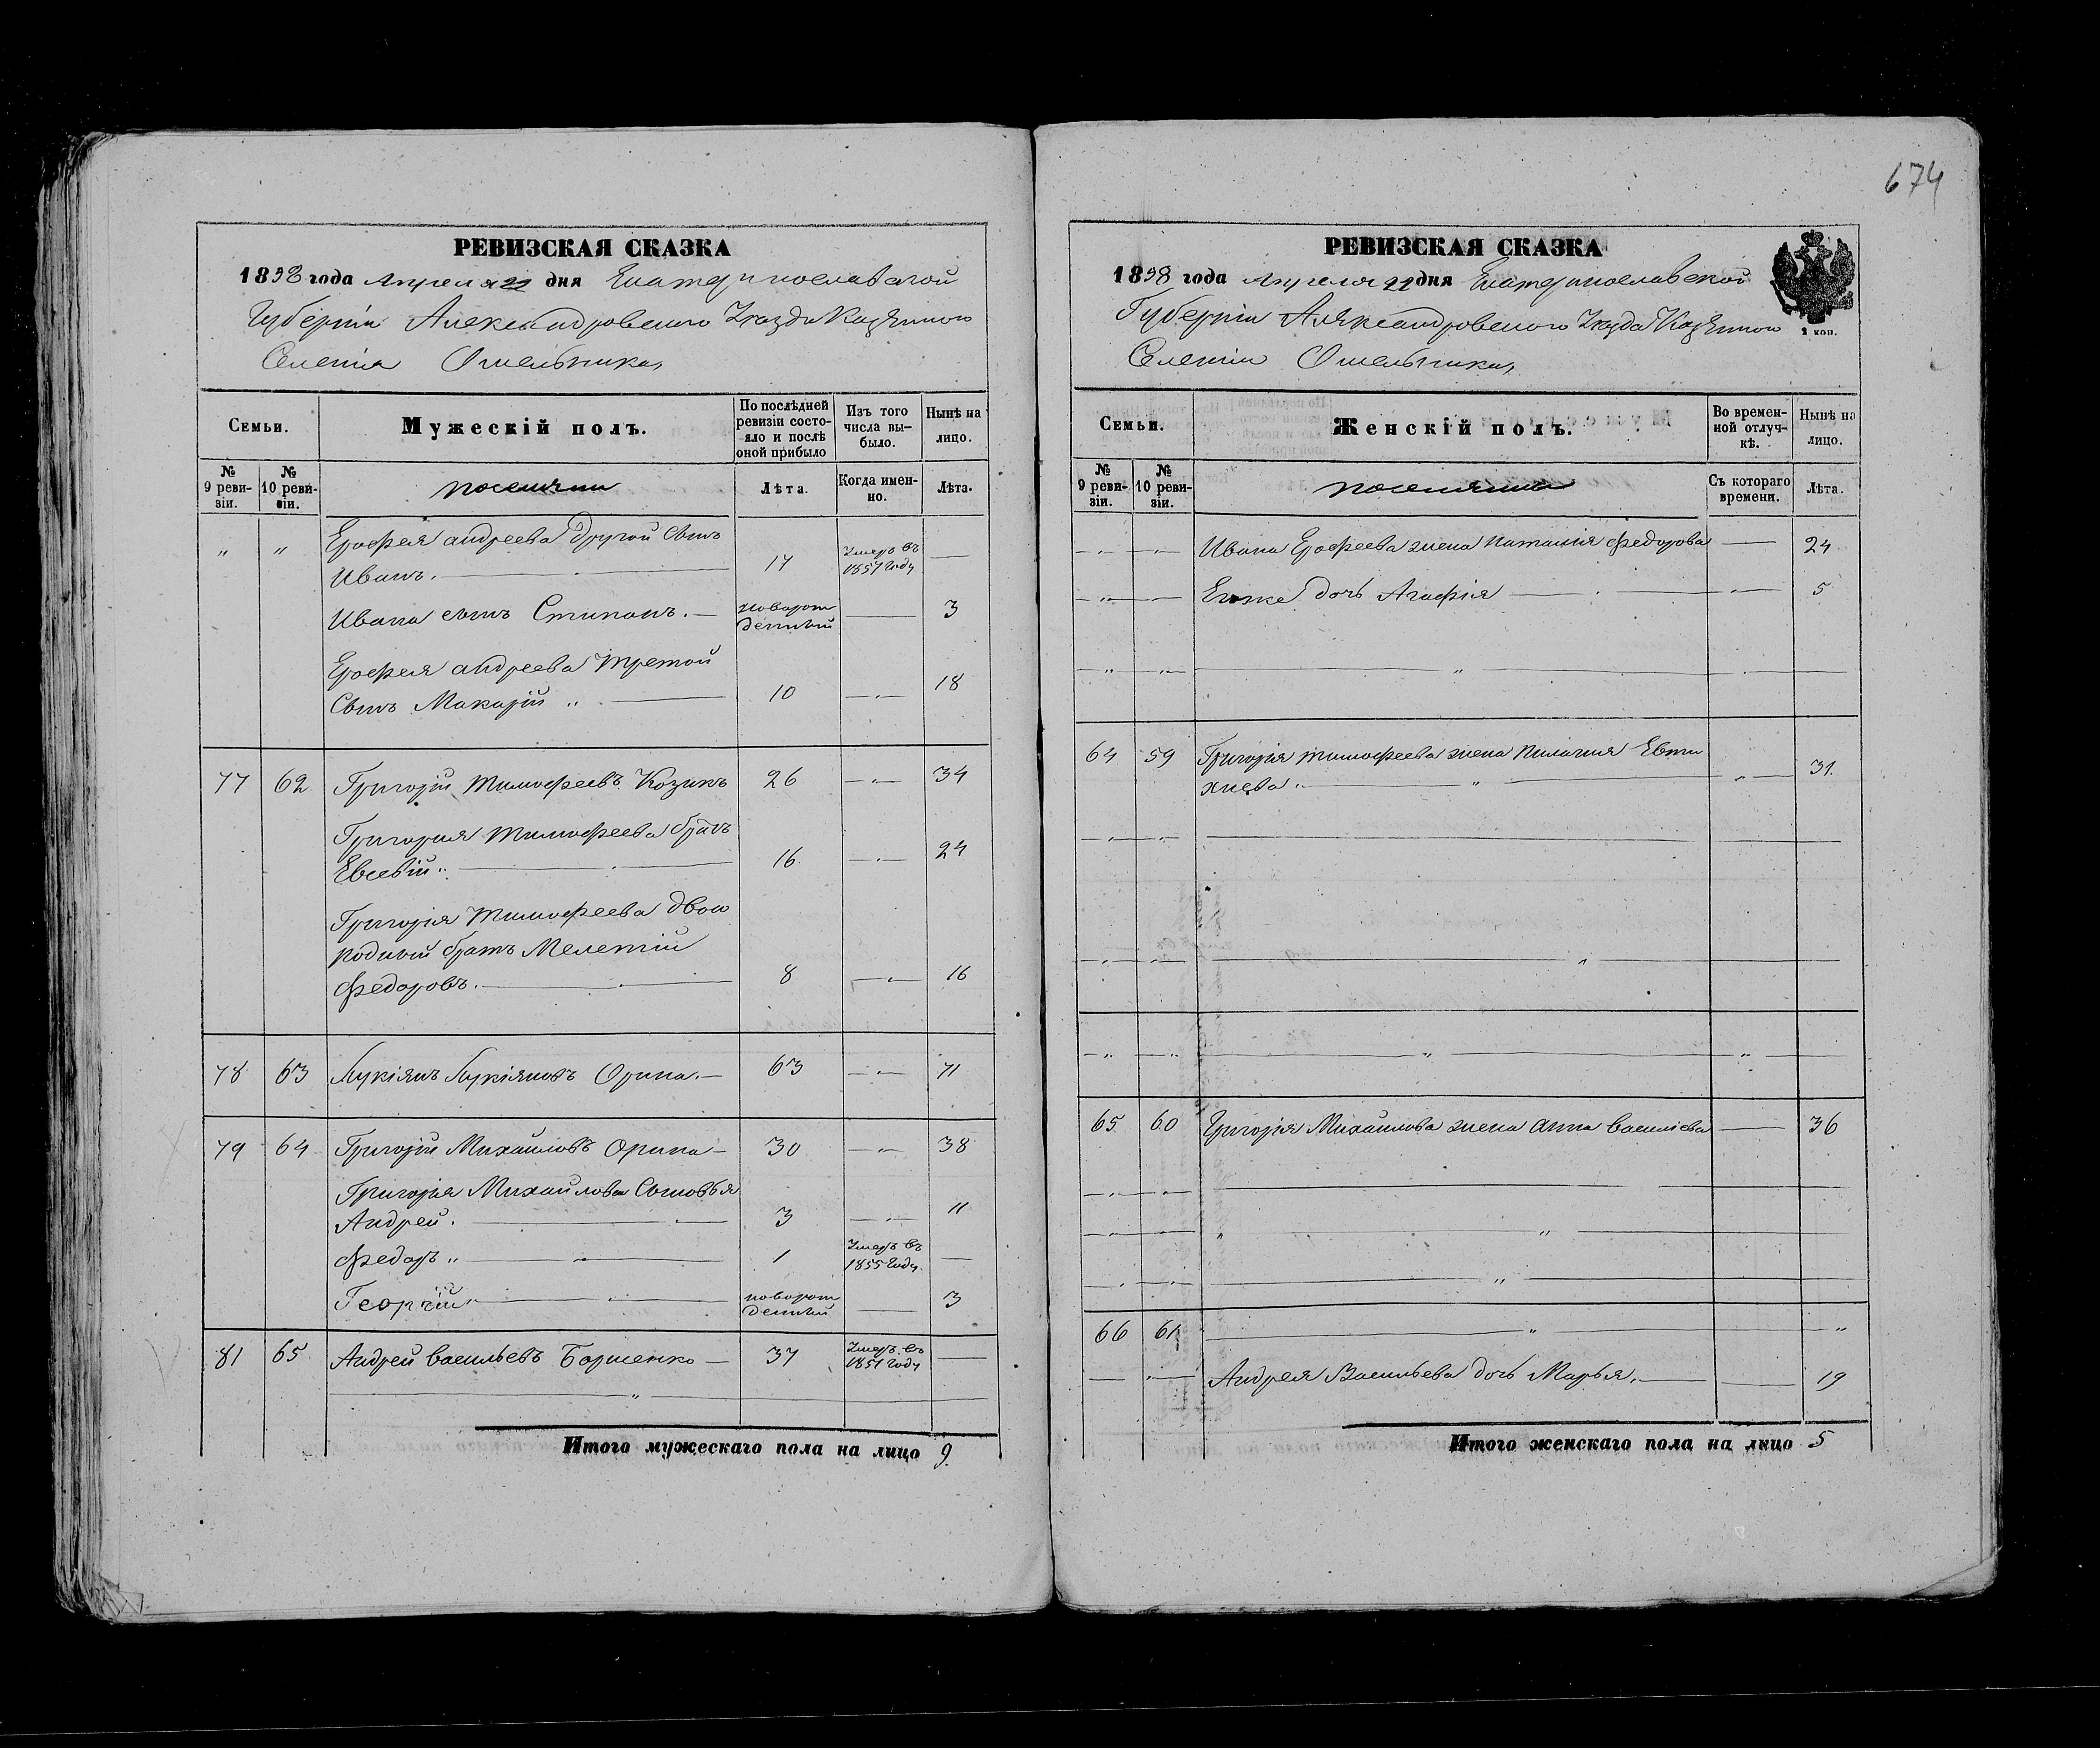 674
РЕВИЗСКАЯ СКАЗКА
1858 года Апреля 22 дня Екатеринославской
Губерніи Александровского Уезда Казенного
Селенія Омельника,
Семьи.
Мужескій полъ.
По послѣдней ревизіи состояло и послѣ оной прибыло
Изъ того числа выбыло.
Нынѣ на лицо.
№ 9 реви-зіи.
№ 10 реви-зіи.
поселяни
Лѣта.
Когда имен-но.
Лѣта.
" " Ерофея андреева другой сынъ
Иванъ. 17 Умеръ въ 1857 году —
Ивана сынъ Стипанъ. — новорож денный — 3
Ерофея андреева третой
Сынъ Макарій " 10 — 18
77 62 Григорій тимофеевъ Козикъ 26 — 34
Григория тимофеева братъ
Евсевій " 16 — 24
Григорія тимофеева двою
родный братъ Мелетій
федоровъ. 8 — 16
78 63 Лукіянъ Лукіяновъ Орина. — 63 — 71
79 64 Григорій Михайловъ Орина — 30 — 38
Григорія Михайлова Сыновья
Андрей. 3 — 11
федоръ " 1 Умеръ въ 1855 году. —
Георгій " новорож денный — 3
81 65 Андрей васильевъ Боршенко — 37 Умеръ въ 1851 году —
Итого мужескаго пола на лицо 9.
РЕВИЗСКАЯ СКАЗКА
1858 года Апреля 22 дня Екатеринославской
Губерніи Александровского Уезда Казенного
Селенія Омельника,
2 коп.
Семьи.
Женскій полъ.
Во времен-ной отлуч-кѣ.
Нынѣ на лицо.
№ 9 реви-зіи.
№ 10 реви-зіи.
поселянки
Съ котораго времени.
Лѣта.
Ивана Ерофеева жена наталія федорова — 24
Егоже дочь Агафія — 5
64 59 Григорія тимофеева жена пилагия Евти
хиева " 31.
65. 60 Григорія Михаилова жена анна василіева — 36
66 61
Андрея Васильева дочь Марья. — 19
Итого женскаго пола на лицо 5